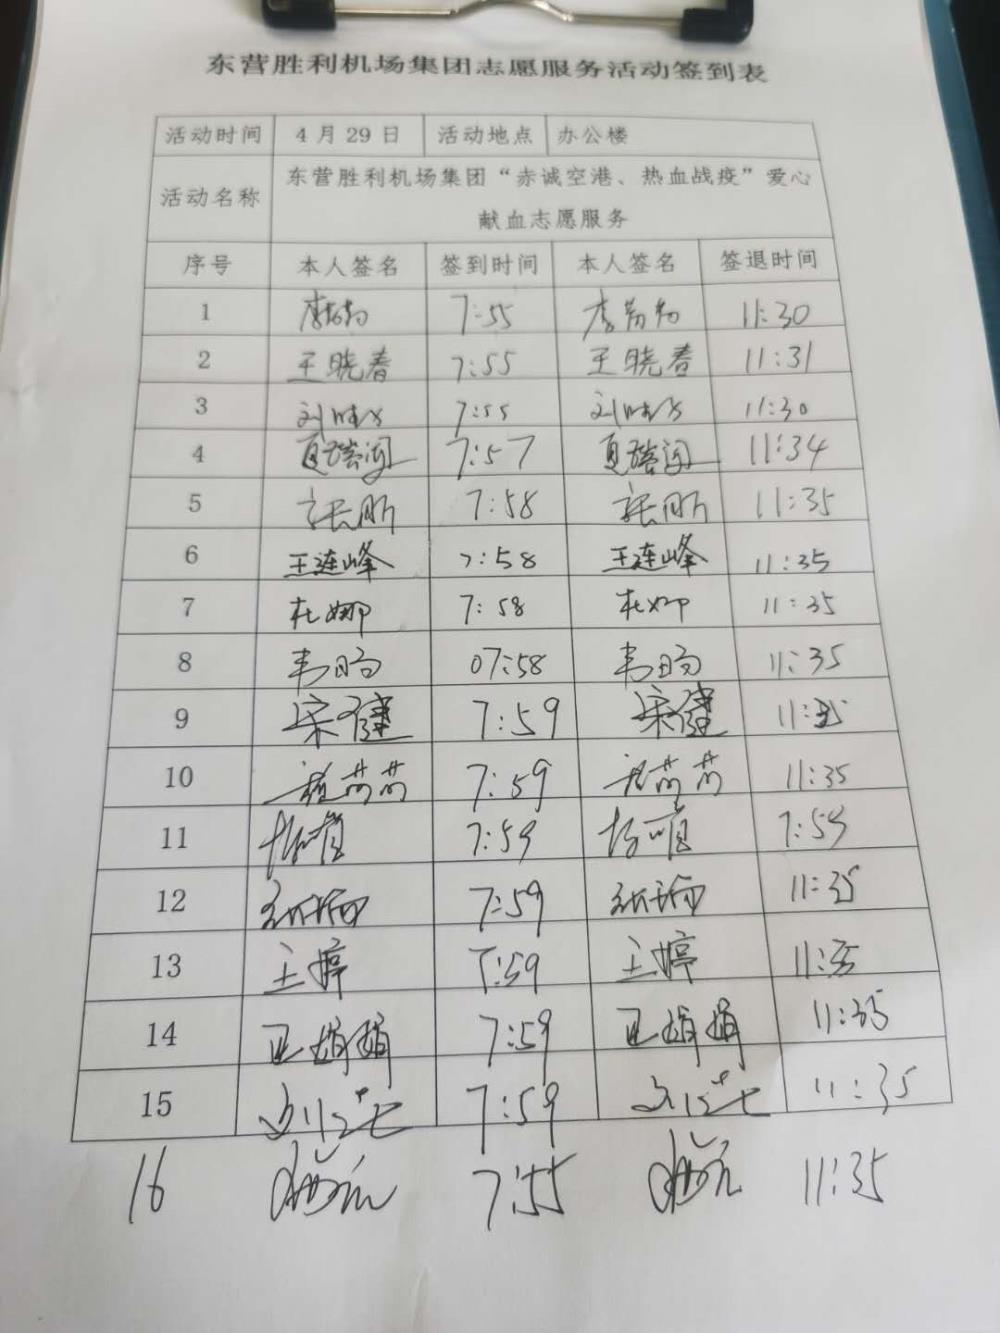 东营胜利机场集团志愿服务活动签到表
活动时间 4月29日 活动地点 办公楼
活动名称 东营胜利机场集团“赤诚空港、热血战疫”爱心
献血志愿服务
序号 本人签名 签到时间 本人签名 签退时间
1 7:55 11:30
2 王晓春 7:55 王晓春 11:31
3 7:55 11:30
4 7:57 11:34
5 张昕 7:58 张昕 11:35
6 王连峰 7:58 王连峰 11:35
7 杜娜 7:58 杜娜 11:35
8 韦旸 07:58 韦旸 11:35
9 宋健 7:59 宋健 11:35
10 7:59 11:35
11 7:59 7:59
12 7:59 11:35
13 王婷 7:59 王婷 11:35
14 7:59 11:35
15 7:59 11:35
16 7:55 11:35